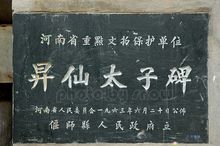 河南省重點文物保护単位
昇仙太子碑
河南省人民委员会一九六三年六月二十日公佈
偃師縣人民政府立